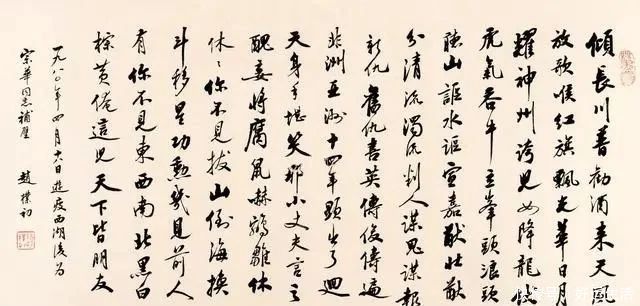 傾長川善勸酒來天風
放歌喉紅旗飄光華日月
耀神州誇兒女降龍
虎氣吞牛立峯頭浪頭
聽山謳水謳宣嘉猷壯猷
分清流濁流判人謀鬼謀報
新仇舊仇喜英傳俊傳遍
非洲亞洲十四年顯出了迴
天身手堪笑那小丈夫言之
醜妄將腐鼠嚇鵷雛休
休々你不見拔山倒海換
斗移星功勳幾見前人
有你不見東西南北黑白
棕黃俺這兒天下皆朋友
一九八〇年四月六日遊瘦西湖後為
宗華同志補壁 趙樸初